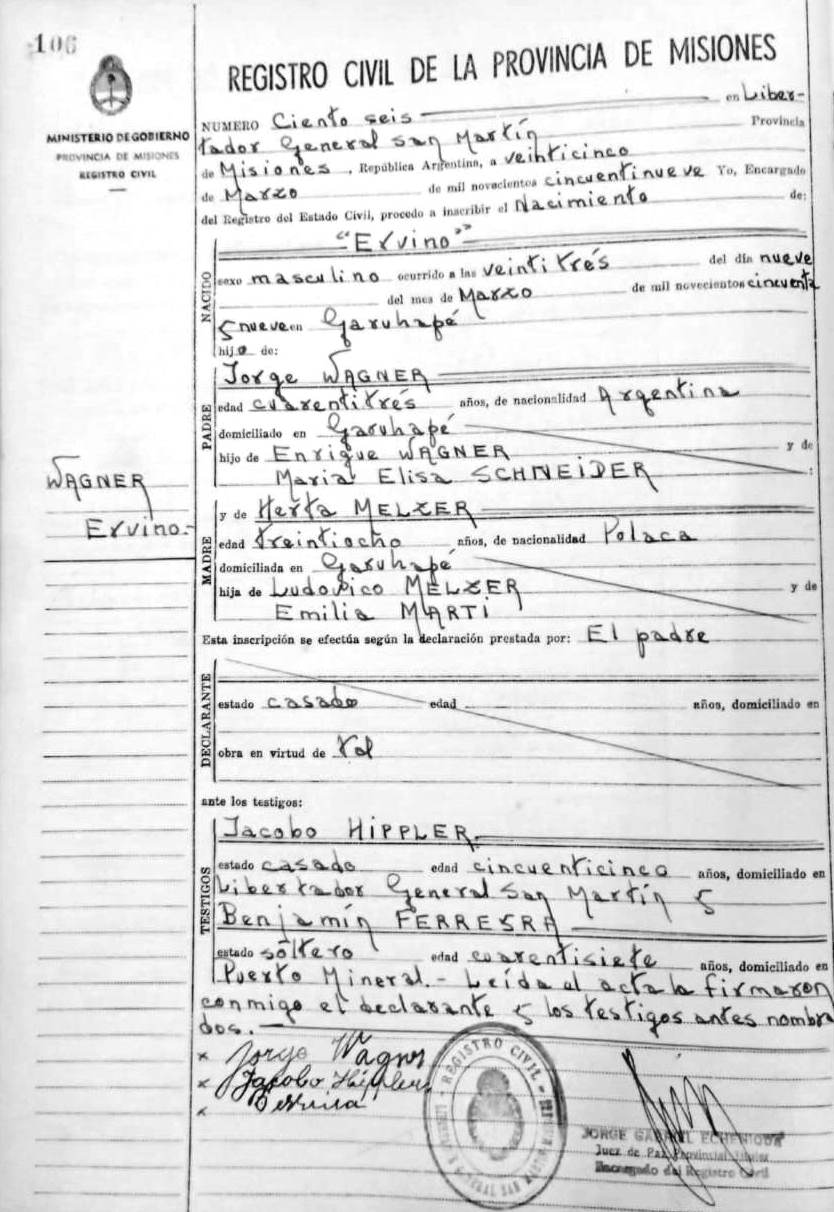 106
MINISTERIO DE GOBIERNO
PROVINCIA DE MISIONES
REGISTRO CIVIL
WAGNER
Ervino.-
REGISTRO CIVIL DE LA PROVINCIA DE MISIONES
NUMERO Ciento seis en Liber-
tador General San Martín Provincia
de Misiones, República Argentina, a veinticinco
de Marzo de mil novecientos cincuentinueve Yo, Encargado
del Registro del Estado Civil, procedo a inscribir el Nacimiento de:
"Ervino"
NACIDO
sexo masculino ocurrido a las veintitrés del día nueve
del mes de Marzo de mil novecientos cincuenta
y nueve en Garuhapé
hijo de:
PADRE
Jorge WAGNER
edad cuarentitrés años, de nacionalidad Argentina
domiciliado en Garuhapé
hijo de Enrique WAGNER y de
Maria Elisa SCHNEIDER :
MADRE
y de Herta MELZER
edad treintiocho años, de nacionalidad Polaca
domiciliada en Garuhapé
hija de Ludovico MELZER y de
Emilia MARTI
Esta inscripción se efectúa según la declaración prestada por: El padre
DECLARANTE
estado casado edad años, domiciliado en
obra en virtud de tal
ante los testigos:
TESTIGOS
Jacobo HIPPLER.
estado casado edad cincuenticinco años, domiciliado en
Libertador General San Martín y
Benjamín FERREYRA
estado sóltero edad cuarentisiete años, domiciliado en
Puerto Mineral.- Leída el acta la firmaron
conmigo el declarante y los testigos antes nombra
dos.-
x Jorge Wagner
x Jacobo Hippler
x
REGISTRO CIVIL
GENERAL SAN MARTIN
JORGE GABRIEL ECHENIQUE
Juez de Paz Provincial
Encargado del Registro Civil